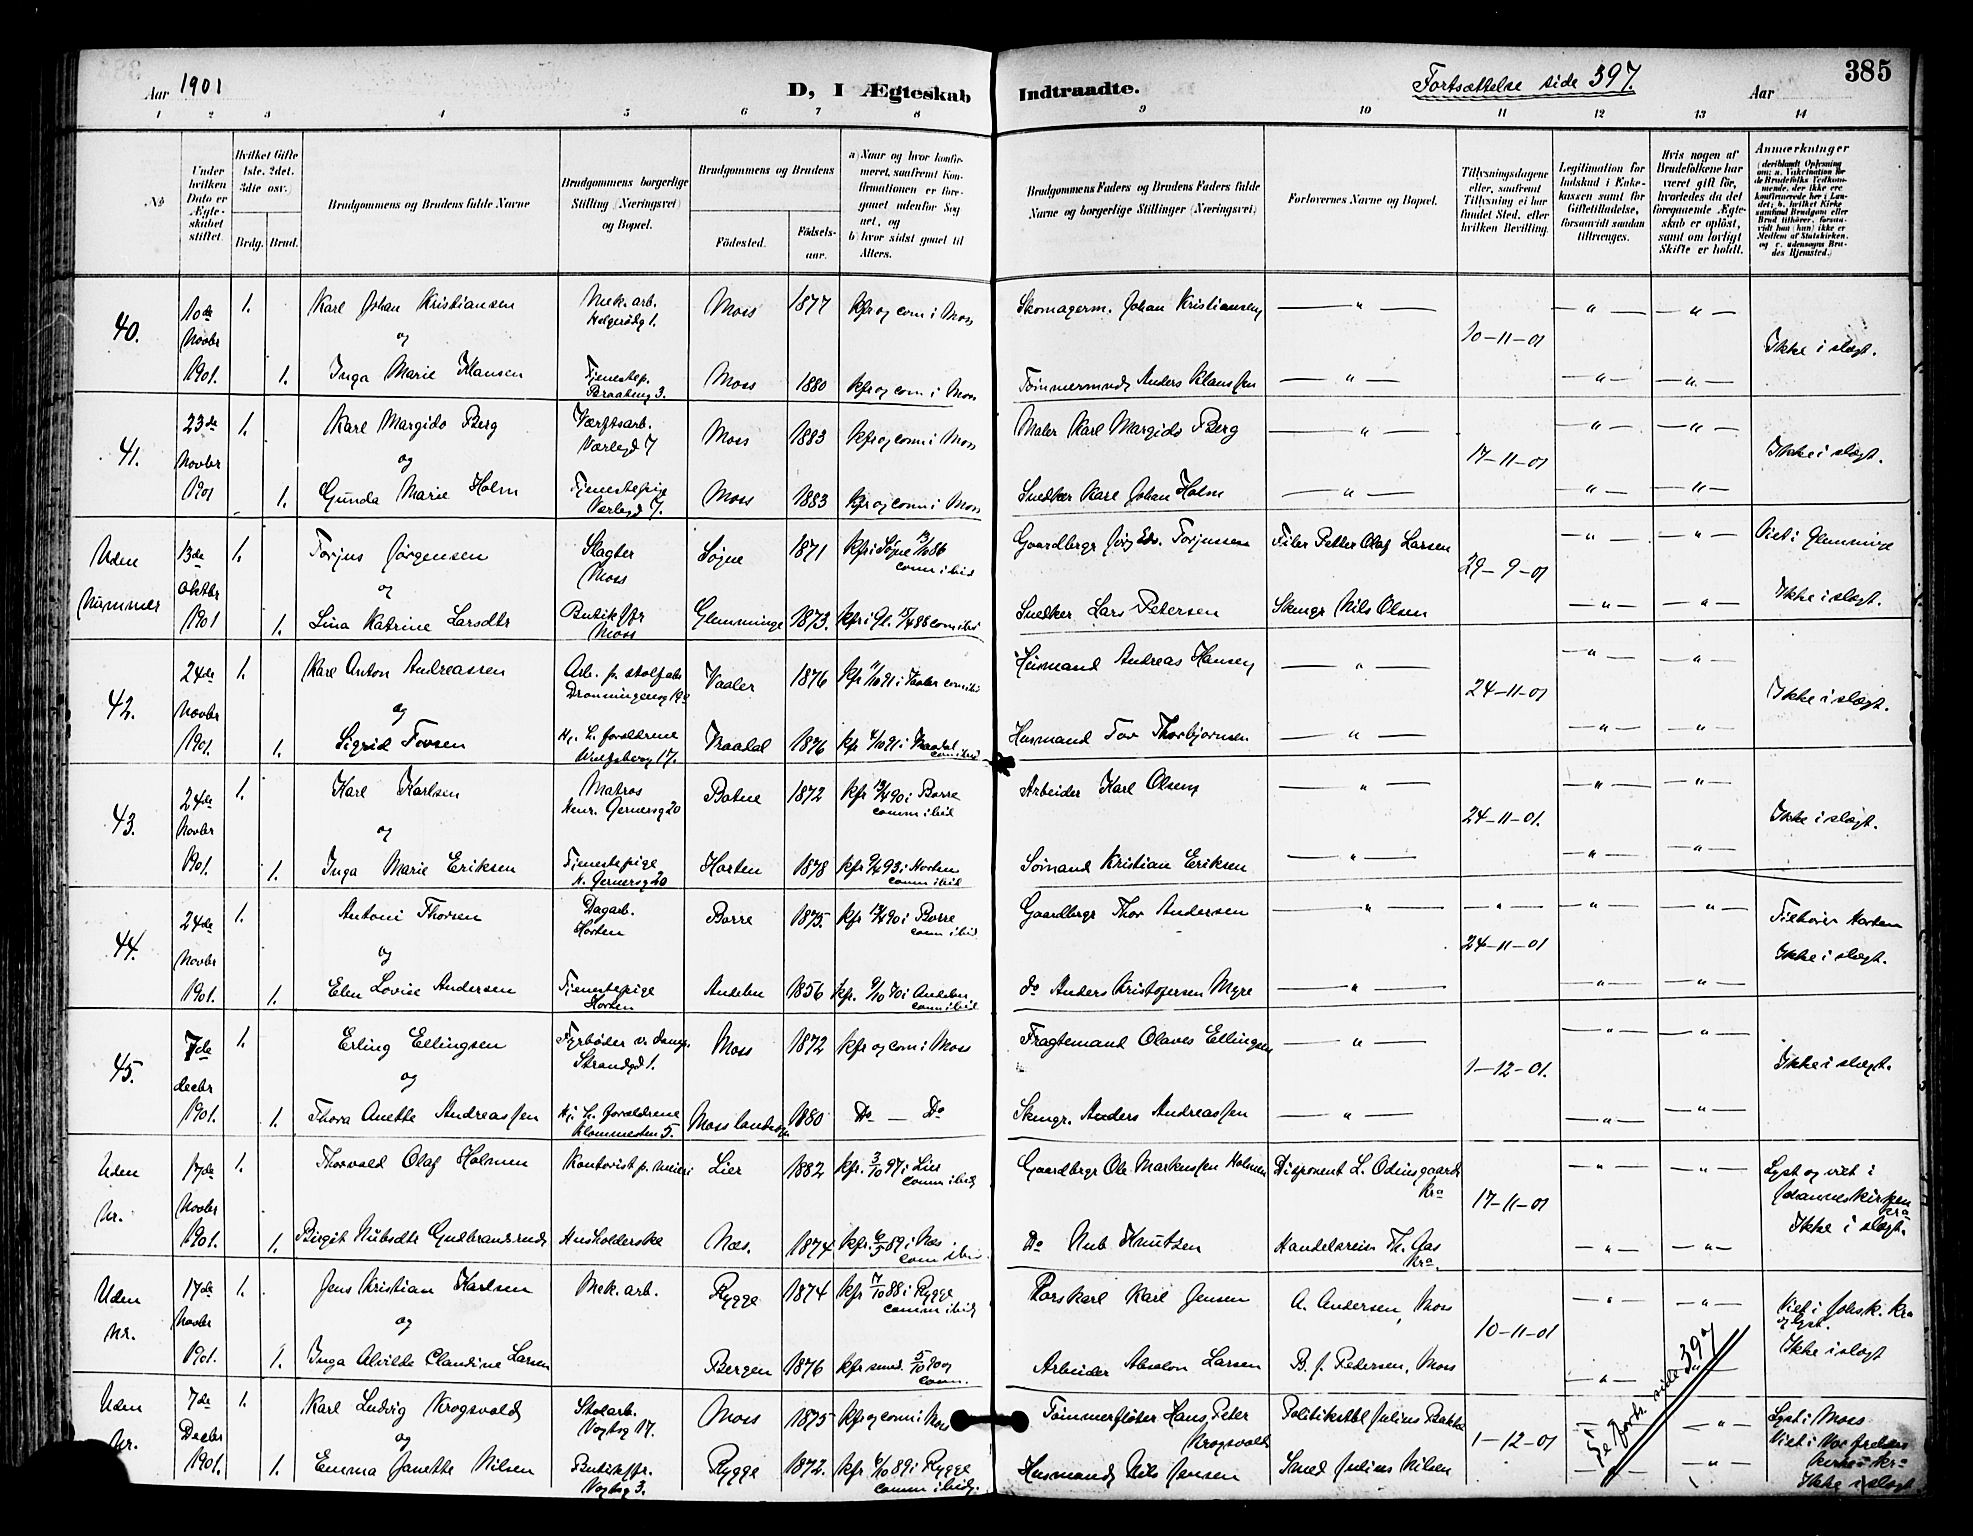 385
Aar 1901
D, I Ægteskab Indtraadte.
Fortsættelse side 397.
Aar
1 2 3 4 5 6 7 8 9 10 11 12 13 14
No
Under hvilken Dato er Ægteskabet stiftet.
Hvilket Gifte 1ste. 2det. 3die osv.)
Brdg. Brud.
Brudgommens og Brudens fulde Navne
Brudgommens borgerlige Stilling (Næringsvei) og Bopæl.
Brudgommens og Brudens
Fødested.
Fødselsaar.
a) Naar og hvor konfirmeret, samfremt Konfirmationen er foregaaet udenfor Sognet, og
b) hvor sidst gaaet til Alters.
Brudgommens Faders og Brudens Faders fulde Navne og borgerlige Stillinger (Næringsvei)
Forlovernes Navne og Bopæl.
Tillysningsdagene eller, samfremt Tillysning ei har fundet Sted, efter hvilken Bevilling.
Legitimation for Indskud i Enkekassen samt for Giftetilladelse, forsaavidt saadan tiltrænges.
Hvis nogen af Brudefolkene har været gift før, hvorledes da det foregaaende Ægteskab er opløst, samt om lovligt Skifte er holdt.
Anmærkninger
40. 10de Novbr 1901.
1. Karl Johan Kristiansen Mek. arb. Helgerødg 1. Moss 1877 kfr og com i Moss Skomagerm. Johan Kristiansen — " —
og 10-11-01 Ikke i slægt.
1. Inga Marie Klausen Tjenestep. Braateng 3. Moss 1880 kfr og com i Moss Tømmermd Anders Klaussen — " —
41. 23de Novbr 1901
1. Karl Margido Berg Værftsarb. Værlegd 7 Moss 1883 kfr og com i Moss Maler Karl Margido Berg — " —
og 17-11-01 Ikke i slægt.
1. Gunda Marie Holm Tjenestepige Værlegd 7. Moss 1883 kfr og com i Moss Snedker Karl Johan Holm — " —
Uden Nummer 13de Oktbr 1901
1. Torjus Jørgensen Slagter Moss Søgne 1871 kfr i Søgne 86 com ibid Gaardbrgr Torjussen Filer Petter Olaf Larsen Viet i Glemminge
og 29-9-01 Ikke i slægt.
1. Lina Katrine Larsdtr Butikfbr Moss Glemminge 1873. kfr i Gl. 88 com ibid Snedker Lars Petersen Skmgr Nils Olsen
42. 24de Novbr 1901.
1. Karl Anton Andreassen Arb. p. stolfabr Dronningensg 19 Vaaler 1876 kfr 91 i Vaaler com ibid Husmand Andreas Hansen — " —
og 24-11-01 Ikke i slægt.
1. Sigrid Tovsen Hj. h. forældrene Wulfsberg 17. Vraadal 1876 kfr 91 i Vraadal com ibid Husmand Tov Thorbjørnsen — " —
43. 24de Novbr 1901.
1. Karl Karlsen Matros Henr. Gernersg 20 Botne 1872 kfr 90 i Borre comm ibid Arbeider Karl Olsen — " —
og 24-11-01. Ikke i slægt.
1. Inga Marie Eriksen Tjenestepige H. Gernersg 20 Horten 1878 kfr 93 i Horten comm ibid Sømand Kristian Eriksen — " —
44. 24de Novbr 1901.
1. Antoni Thorsen Dagarb. Horten Borre 1875. kfr 90 i Borre comm ibid Gaardbrgr Thor Andersen — " — Tilhører Horten
og 24-11-01 Ikke i slægt.
1. Elen Lovise Andersen Tjenestepige Horten Andebu 1856 kfr. 9/10 70 i Andebu com ibid do Anders Kristofersen Myre — " —
45. 7de decbr 1901.
1. Erling Ellingsen Fyrbøder v. damps. Strandgd 1. Moss 1872 kfr og com i Moss Fragtemand Olaves Ellingsen — " —
og 1-12-01. Ikke i slægt.
1. Thora Anette Andreassen Hj. h. forældrene Klommesten 5. Moss landsogn 1880 Do — Do Skmgr. Anders Andreassen — " —
Uden Nr. 17de Novbr 1901.
1. Thorvald Olaf Holmen Kontorist p. meieri Lier 1882 kfr. 3/10 97 i Lier comm ibid Gaardbrgr Ole Markussen Holmen Disponent L. Odingaard Kra Lyst og viet i Johanneskirken Kra
17-11-01 Ikke i slægt.
1. Birgit Nubsdtr Gudbrandsrud Husholderske Næs. 1874 kfr. 89 i Næs. com ibid. Do Nub Knutsen Handelsreis Th. Gas Kra.
Uden Nr. 17de Novbr 1901.
1. Jens Kristian Karlsen Mek. arb. Rygge 1874 kfr 7/10 88 i Rygge comm ibid Karl Jensen A. Andersen, Moss Viet i Johsk. Kra og lyst.
og 10-11-01 Ikke i slægt
1. Inga Alvilde Claudine Larsen Bergen 1876 kfr smd. 5/10 90 og comm. Arbeider Absalon Larsen B. J. Pedersen, Moss
Uden Nr. 7de Decbr 1901.
1. Karl Ludvig Krogsvold Stolarb. Vogtsg 17. Moss 1875 kfr og com i Moss Tømmerfløter Hans Peter Krogsvold Politikstbl Julius Bakke Lyst i Moss
og 1-12-01 Viet i Vor frelsers Kirke i Kra
1. Emma Janette Nilsen Butikfbr. Vogtsg 3. Rygge 1872. kfr 89 i Rygge comm ibid. Husmand Nils Jensen Smed Julius Nilsen Ikke i slægt
Se forts. side 397